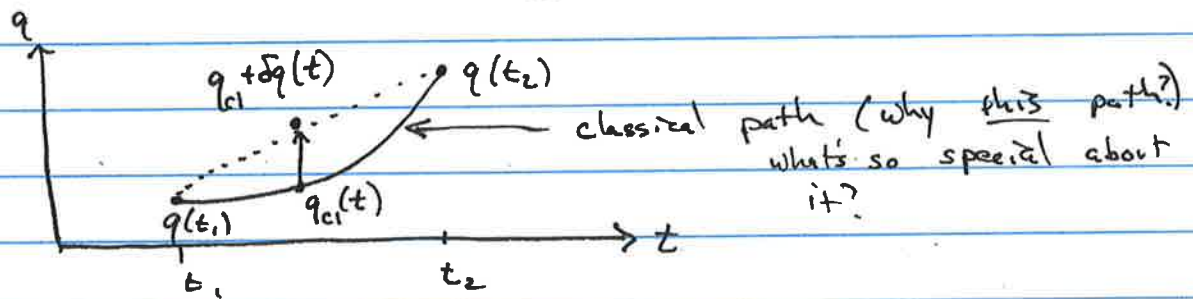 q
q_cl + δq(t)
q(t_2)
classical path (why this path?)
what's so special about
it?
q(t_1)
q_cl(t)
t
t_1
t_2